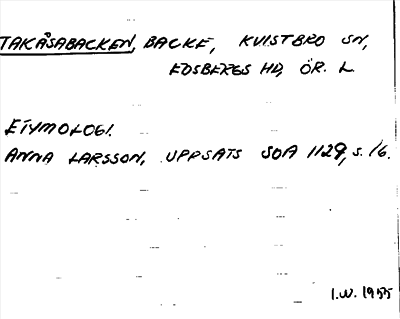 TAKÅSABACKEN, BACKE, KVISTBRO SN,
EDSBERGS HD, ÖR. L.
ETYMOLOGI.
ANNA LARSSON, UPPSATS SOA 1129, S. 16.
I.W. 1955